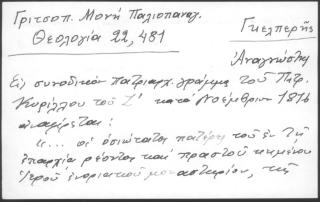 Γριτσοπ. Μονή Παλιοπαναγ.
Θεολογία 22, 481
Γκελπερῆς
Ἀναγνώστης
Εἰς συνοδικὸν πατριαρχ. γράμμα τοῦ Πατρ.
Κυρίλλου τοῦ Σ' κατὰ Νοέμβριον 1816
ἀναφέρεται:
"... οἱ ὁσιώτατοι πατέρες τοῦ ἐν τῇ
ἐπαρχίᾳ ρέοντος καὶ πραστοῦ κειμένου
Ἱεροῦ ἐνοριακοῦ μοναστηρίου, τῆς